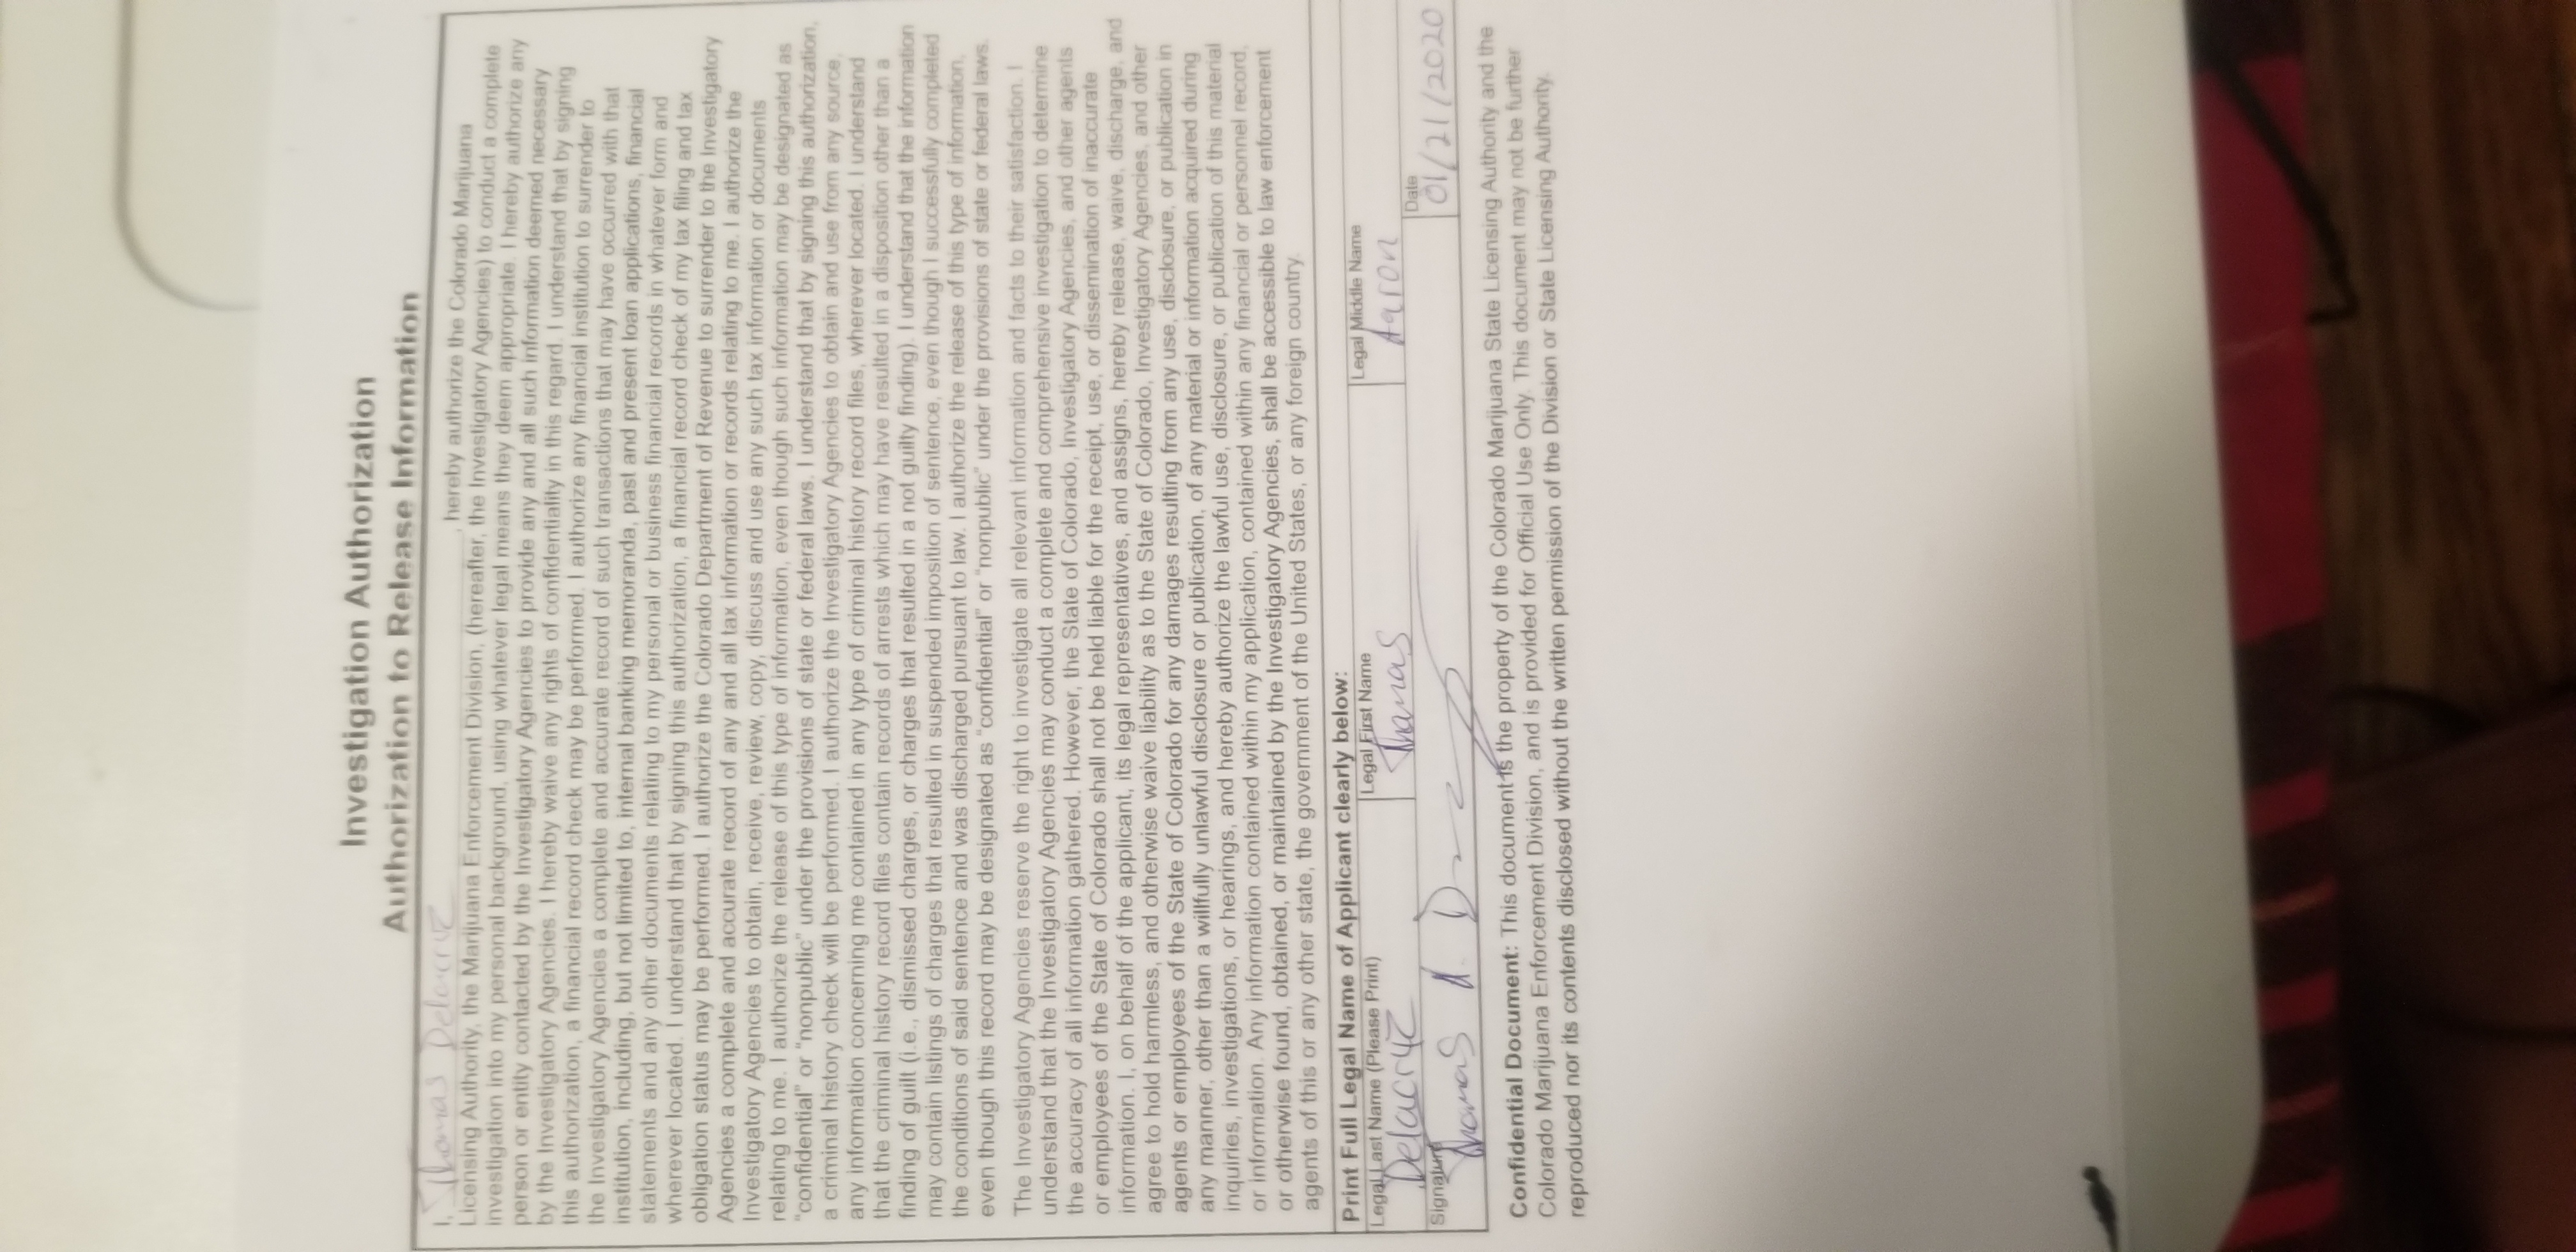 Investigation Authorization
Authorization to Release Information
I, Thomas Delacruz, hereby authorize the Colorado Marijuana
Licensing Authority, the Marijuana Enforcement Division, (hereafter, the Investigatory Agencies) to conduct a complete
investigation into my personal background, using whatever legal means they deem appropriate. I hereby authorize any
person or entity contacted by the Investigatory Agencies to provide any and all such information deemed necessary
by the Investigatory Agencies. I hereby waive any rights of confidentiality in this regard. I understand that by signing
this authorization, a financial record check may be performed. I authorize any financial institution to surrender to
the Investigatory Agencies a complete and accurate record of such transactions that may have occurred with that
institution, including, but not limited to, internal banking memoranda, past and present loan applications, financial
statements and any other documents relating to my personal or business financial records in whatever form and
wherever located. I understand that by signing this authorization, a financial record check of my tax filing and tax
obligation status may be performed. I authorize the Colorado Department of Revenue to surrender to the Investigatory
Agencies a complete and accurate record of any and all tax information or records relating to me. I authorize the
Investigatory Agencies to obtain, receive, review, copy, discuss and use any such tax information or documents
relating to me. I authorize the release of this type of information, even though such information may be designated as
"confidential" or "nonpublic" under the provisions of state or federal laws. I understand that by signing this authorization,
a criminal history check will be performed. I authorize the Investigatory Agencies to obtain and use from any source,
any information concerning me contained in any type of criminal history record files, wherever located. I understand
that the criminal history record files contain records of arrests which may have resulted in a disposition other than a
finding of guilt (i.e., dismissed charges, or charges that resulted in a not guilty finding). I understand that the information
may contain listings of charges that resulted in suspended imposition of sentence, even though I successfully completed
the conditions of said sentence and was discharged pursuant to law. I authorize the release of this type of information,
even though this record may be designated as "confidential" or "nonpublic" under the provisions of state or federal laws.
The Investigatory Agencies reserve the right to investigate all relevant information and facts to their satisfaction. I
understand that the Investigatory Agencies may conduct a complete and comprehensive investigation to determine
the accuracy of all information gathered. However, the State of Colorado, Investigatory Agencies, and other agents
or employees of the State of Colorado shall not be held liable for the receipt, use, or dissemination of inaccurate
information. I, on behalf of the applicant, its legal representatives, and assigns, hereby release, waive, discharge, and
agree to hold harmless, and otherwise waive liability as to the State of Colorado, Investigatory Agencies, and other
agents or employees of the State of Colorado for any damages resulting from any use, disclosure, or publication in
any manner, other than a willfully unlawful disclosure or publication, of any material or information acquired during
inquiries, investigations, or hearings, and hereby authorize the lawful use, disclosure, or publication of this material
or information. Any information contained within my application, contained within any financial or personnel record,
or otherwise found, obtained, or maintained by the Investigatory Agencies, shall be accessible to law enforcement
agents of this or any other state, the government of the United States, or any foreign country.
Print Full Legal Name of Applicant clearly below:
Legal Last Name (Please Print) Legal First Name Legal Middle Name
Delacruz Thomas Aaron
Signature Date
Thomas A. D 01/21/2020
Confidential Document: This document is the property of the Colorado Marijuana State Licensing Authority and the
Colorado Marijuana Enforcement Division, and is provided for Official Use Only. This document may not be further
reproduced nor its contents disclosed without the written permission of the Division or State Licensing Authority.